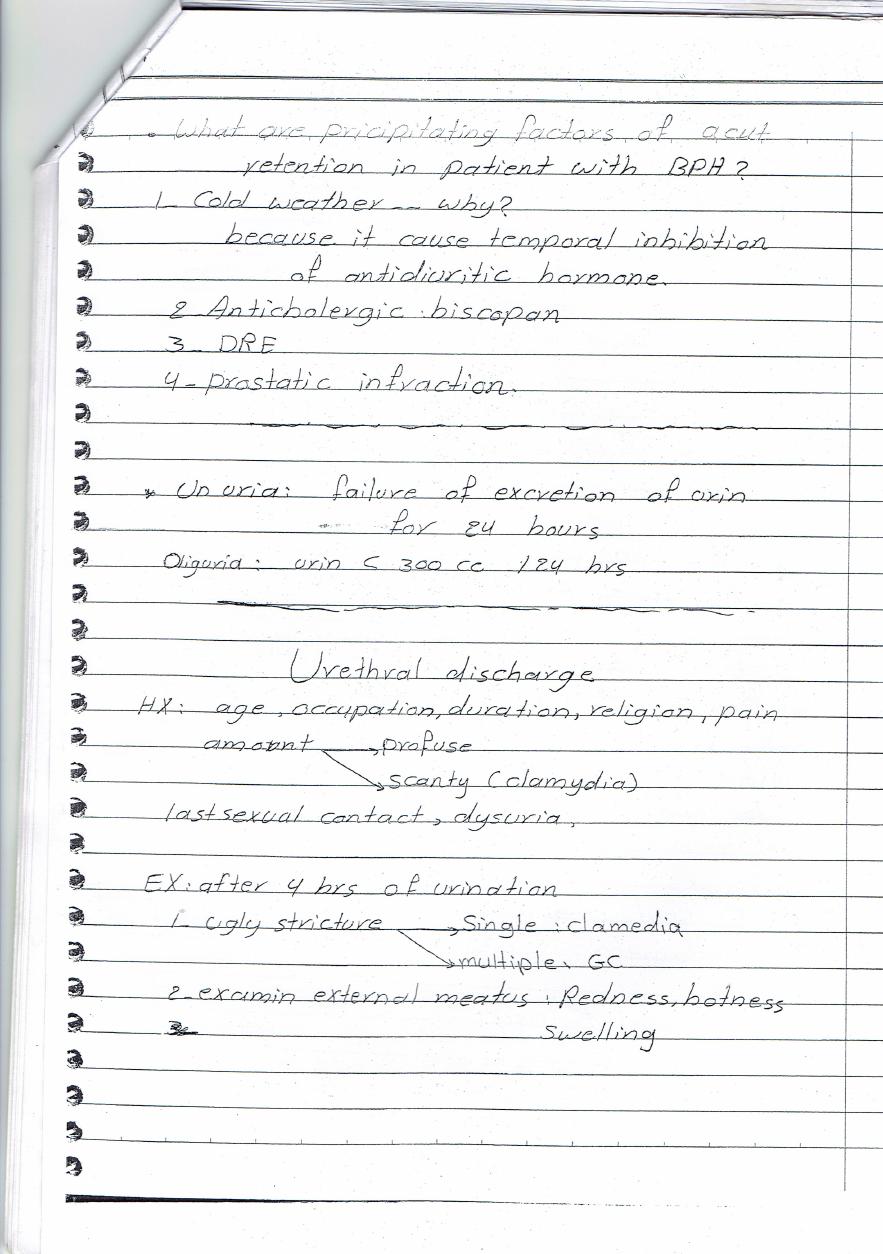 . What are pricipitating factors of acut
retention in patient with BPH?
1_ Cold weather -- why?
because it cause temporal inhibition
of antidiuritic hormone.
2 Anticholergic : biscopan
3_ DRE
4- prostatic infraction.
* Un uria: failure of excretion of urin
for 24 hours
Oliguria : urin < 300 cc / 24 hrs
Urethral discharge
HX: age, occupation, duration, religion, pain
amount → profuse
→ scanty (clamydia)
last sexual contact, dysuria,
EX: after 4 hrs of urination
1- ugly stricture → Single : clamedia
→ multiple. GC
2- examin external meatus : Redness, hotness
Swelling